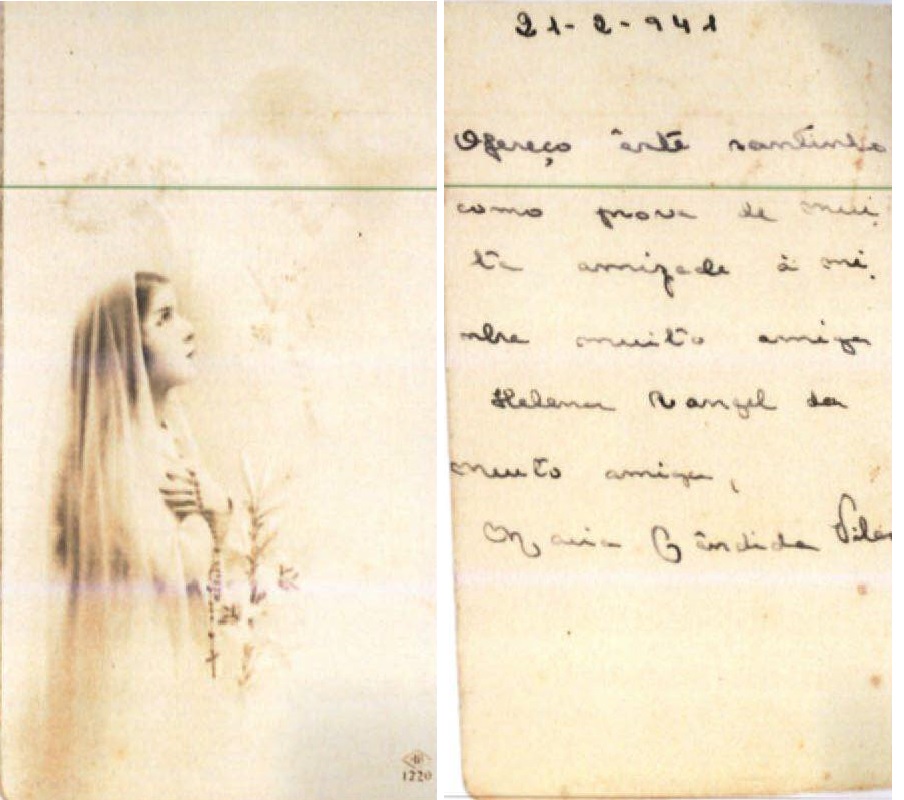 1220
21-2-941
Ofereço êste santinho
como prova de mui
ta amizade à mi
nha muito amiga
Helena Rangel da
muito amiga,
Maria Cândida